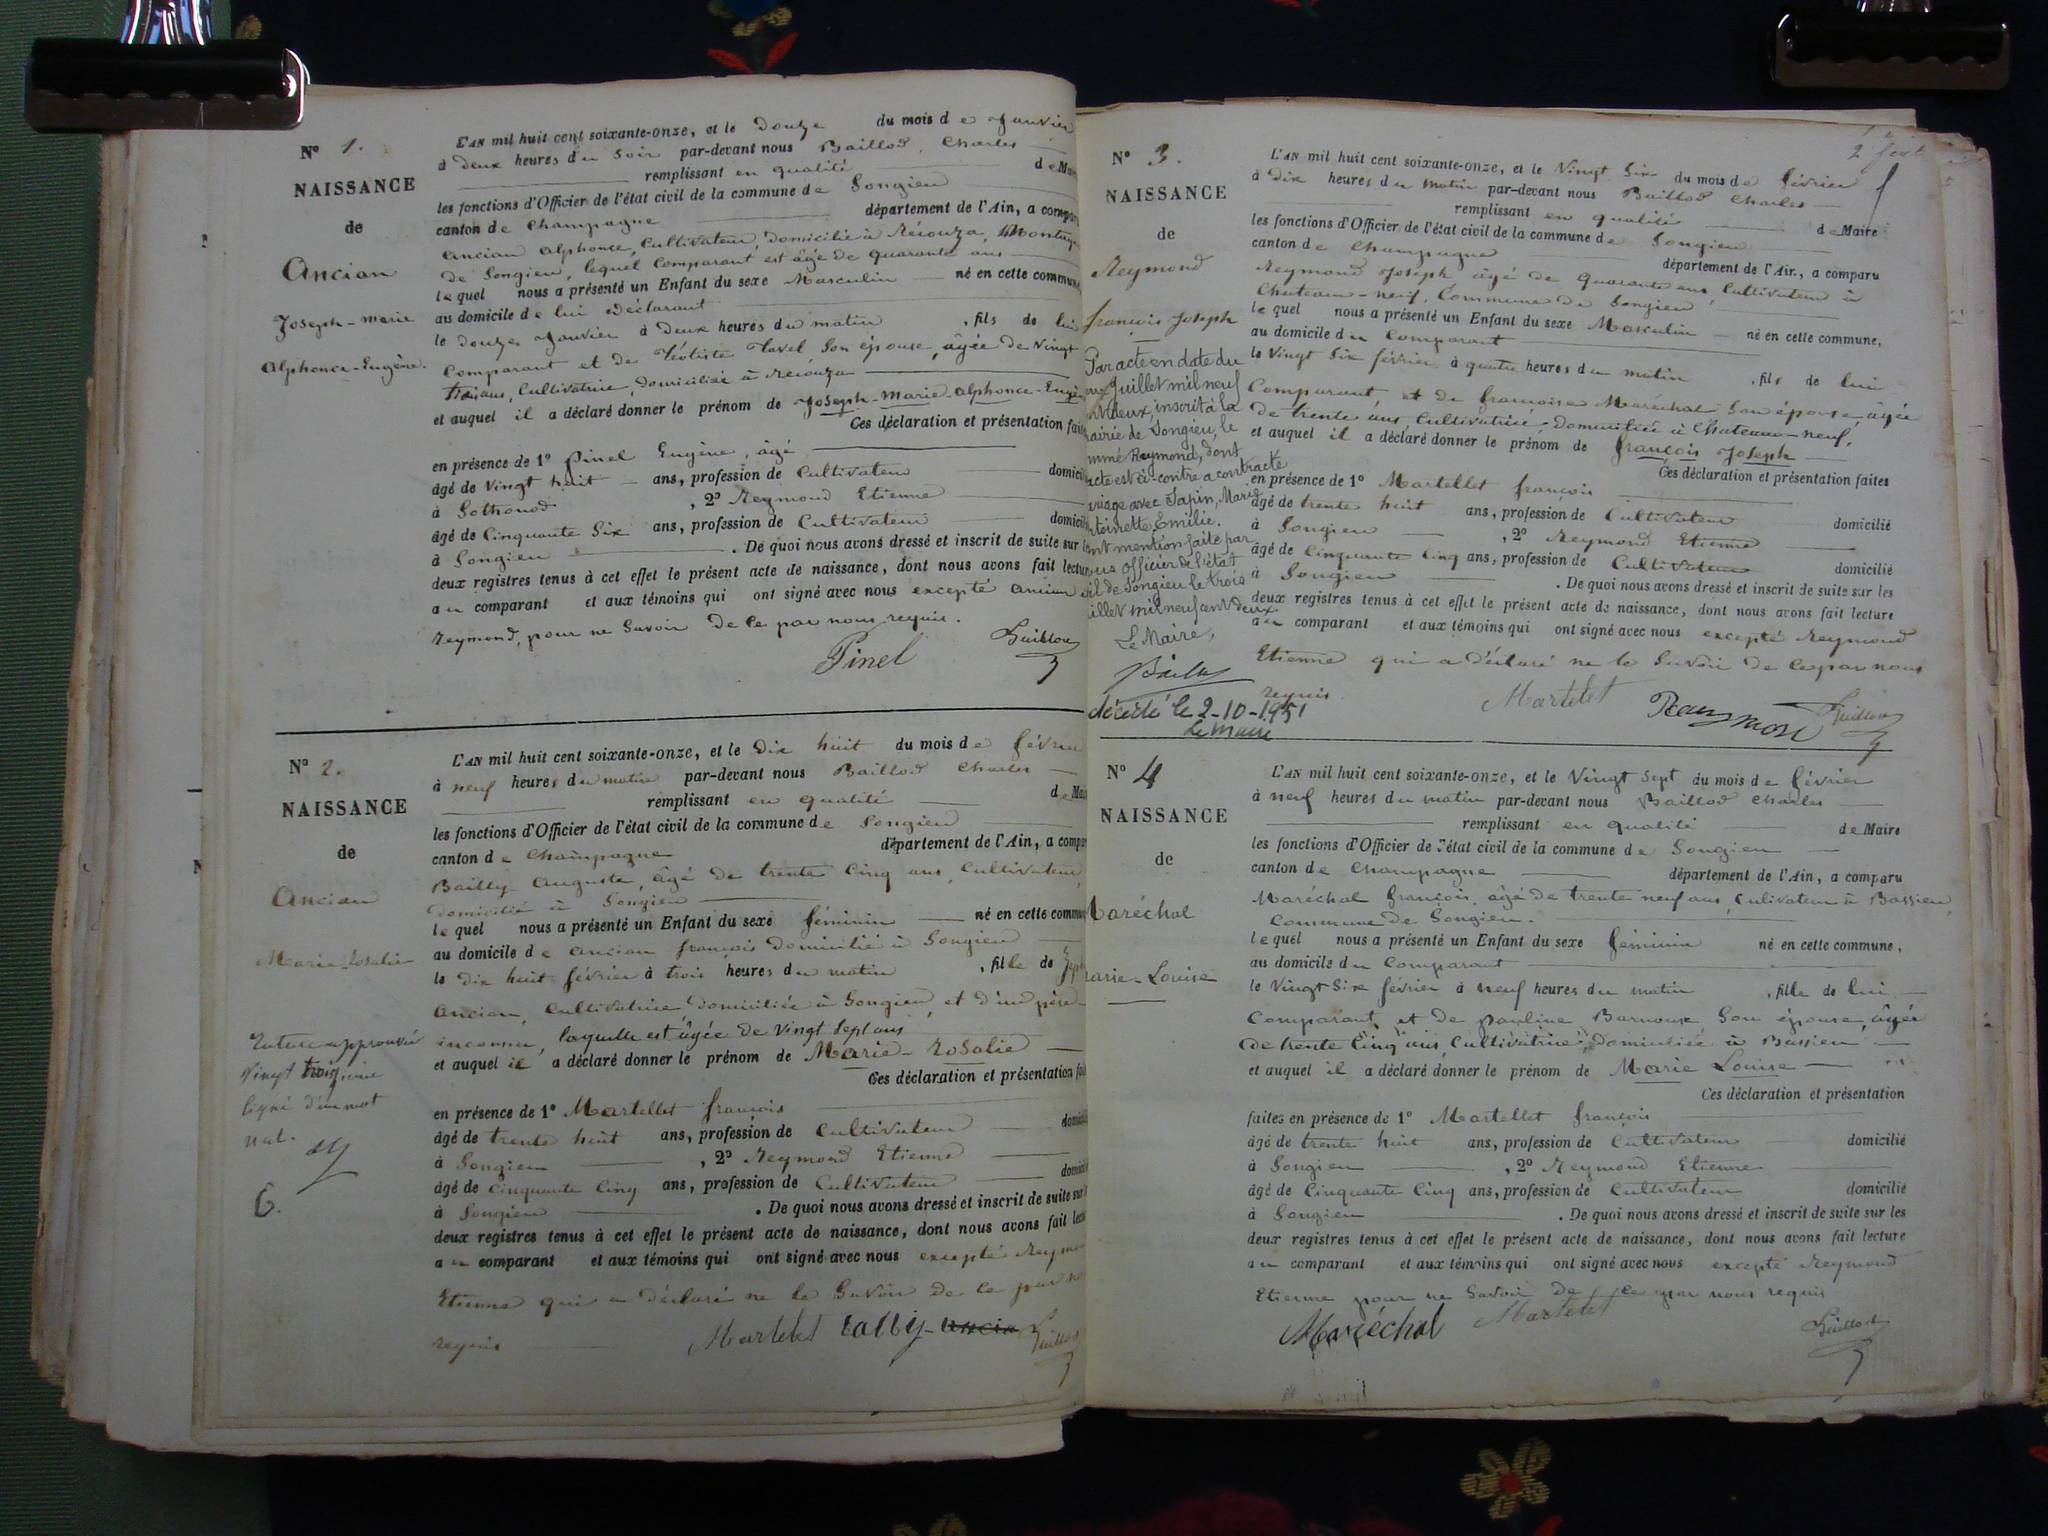 N° 1.
NAISSANCE
de
Ancian
Joseph-marie
Alphonce-Eugène.
L'AN mil huit cent soixante-onze, et le Douze du mois de Janvier
à Deux heures du Soir par-devant nous Baillod Charles
remplissant en qualité de Mai
les fonctions d'Officier de l'état civil de la commune de Songieu
canton de Champagne département de l'Ain, a compar
Ancian Alphonce, Cultivateur, Domicilié à
de Songieu, lequel Comparant est âgé de quarante ans
lequel nous a présenté un Enfant du sexe Masculin né en cette commune,
au domicile de lui Déclarant
le douze Janvier à Deux heures du matin, fils de lui
Comparant et de Tavel, Son épouse, âgée de Vingt
trois ans, Cultivatrice, Domiciliée à
et auquel il a déclaré donner le prénom de Joseph-Marie-Alphonce-Eugèn
Ces déclaration et présentation faite
en présence de 1° Pinel Eugène, âgé
âgé de Vingt huit ans, profession de Cultivateur domicili
à Sothonod, 2° Reymond Etienne
âgé de Cinquante Six ans, profession de Cultivateur domicili
à Songieu. De quoi nous avons dressé et inscrit de suite sur l
deux registres tenus à cet effet le présent acte de naissance, dont nous avons fait lectur
au comparant et aux témoins qui ont signé avec nous excepté Ancian
Reymond, pour ne Savoir De ce par nous requis.
Pinel
N° 2.
NAISSANCE
de
Ancian
Marie-Rosalie
Rature approuvée
Vingt troisième
ligne d'un mot
nul.
6.
L'AN mil huit cent soixante-onze, et le Dix huit du mois de février
à neuf heures du matin par-devant nous Baillod Charles
remplissant en qualité de Mai
les fonctions d'Officier de l'état civil de la commune de Songieu
canton de Champagne département de l'Ain, a compar
Bailly Auguste, âgé de trente Cinq ans, Cultivateur,
domicilié à Songieu
lequel nous a présenté un Enfant du sexe féminin né en cette commun
au domicile de Ancian françois domicilié à Songieu
le dix huit février à trois heures du matin, fille de
Ancian, Cultivatrice, Domiciliée à Songieu, et d'un père
inconnu, laquelle est âgée de Vingt Sept ans
et auquel il a déclaré donner le prénom de Marie-Rosalie
Ces déclaration et présentation fai
en présence de 1° Martellet françois
âgé de trente huit ans, profession de Cultivateur domicili
à Songieu, 2° Reymond Etienne
âgé de Cinquante Cinq ans, profession de Cultivateur domicili
à Songieu. De quoi nous avons dressé et inscrit de suite sur
deux registres tenus à cet effet le présent acte de naissance, dont nous avons fait lect
au comparant et aux témoins qui ont signé avec nous excepté Reymon
Etienne qui a Déclaré ne le Savoir De ce par no
requis
Martelet Bally
N° 3.
NAISSANCE
de
Reymond
françois-Joseph
Par acte en date du
Juillet mil neuf
deux, inscrit à la
airie de Songieu, le
mmé Reymond, dont
acte est ci-contre a contracté
riage avec Sapin, Marie
ntoinette Emilie.
nt mention faite par
ous officier de l'état
il de Songieu le trois
illet mil neuf cent deux
Le Maire,
décédé le 2-10-1951
Le Maire
2 sept
L'AN mil huit cent soixante-onze, et le Vingt Six du mois de février
à Dix heures du matin par-devant nous Baillod Charles
remplissant en qualité de Maire
les fonctions d'Officier de l'état civil de la commune de Songieu
canton de Champagne département de l'Ain, a comparu
Reymond Joseph âgé de quarante ans, Cultivateur à
Chateau-neuf, Commune de Songieu
lequel nous a présenté un Enfant du sexe Masculin né en cette commune,
au domicile du Comparant
le Vingt Six février à quatre heures du matin, fils de lui
Comparant, et de françoise Maréchal Son épouse, âgée
de trente ans, Cultivatrice, Domiciliée à Chateau-neuf,
et auquel il a déclaré donner le prénom de françois Joseph
Ces déclaration et présentation faites
en présence de 1° Martellet françois
âgé de trente huit ans, profession de Cultivateur domicilié
à Songieu, 2° Reymond Etienne
âgé de Cinquante Cinq ans, profession de Cultivateur domicilié
à Songieu. De quoi nous avons dressé et inscrit de suite sur les
deux registres tenus à cet effet le présent acte de naissance, dont nous avons fait lecture
au comparant et aux témoins qui ont signé avec nous excepté Reymond
Etienne qui a déclaré ne le Savoir de ce par nous
requis
Martelet
N° 4
NAISSANCE
de
Maréchal
arie-Louise
L'AN mil huit cent soixante-onze, et le Vingt Sept du mois de février
à neuf heures du matin par-devant nous Baillod Charles
remplissant en qualité de Maire
les fonctions d'Officier de l'état civil de la commune de Songieu
canton de Champagne département de l'Ain, a comparu
Maréchal françois, âgé de trente neuf ans, Cultivateur à Bassieu,
Commune de Songieu.
lequel nous a présenté un Enfant du sexe féminin né en cette commune,
au domicile du Comparant
le Vingt Six février à neuf heures du matin, fille de lui
Comparant, et de pauline Barnoux Son épouse, âgée
de trente Cinq ans, Cultivatrice, domiciliée à Bassieu
et auquel il a déclaré donner le prénom de Marie Louise
Ces déclaration et présentation
faites en présence de 1° Martellet françois
âgé de trente huit ans, profession de Cultivateur domicilié
à Songieu, 2° Reymond Etienne
âgé de Cinquante Cinq ans, profession de Cultivateur domicilié
à Songieu. De quoi nous avons dressé et inscrit de suite sur les
deux registres tenus à cet effet le présent acte de naissance, dont nous avons fait lecture
au comparant et aux témoins qui ont signé avec nous excepté Reymond
Etienne pour ne Savoir De ce par nous requis
Maréchal Martelet